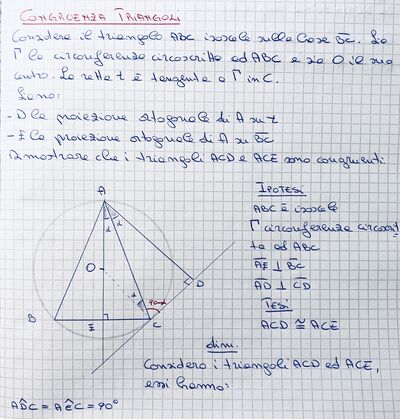 CONGRUENZA TRIANGOLI
Considera il triangolo ABC isoscele sulla base BC. Sia
Γ la circonferenza circoscritta ad ABC e sia O il suo
centro. La retta t è tangente a Γ in C.
Siano:
- D la proiezione ortogonale di A su t
- E la proiezione ortogonale di A su BC
Dimostrare che i triangoli ACD e ACE sono congruenti.
A
α
α
O
D
90-α
α
B
E
C
IPOTESI
ABC è isoscele
Γ circonferenza circoscrit
ta ad ABC
AE ⊥ BC
AD ⊥ CD
TESI
ACD ≅ ACE
dim.
Considero i triangoli ACD ed ACE,
essi hanno:
AD̂C = AÊC = 90°